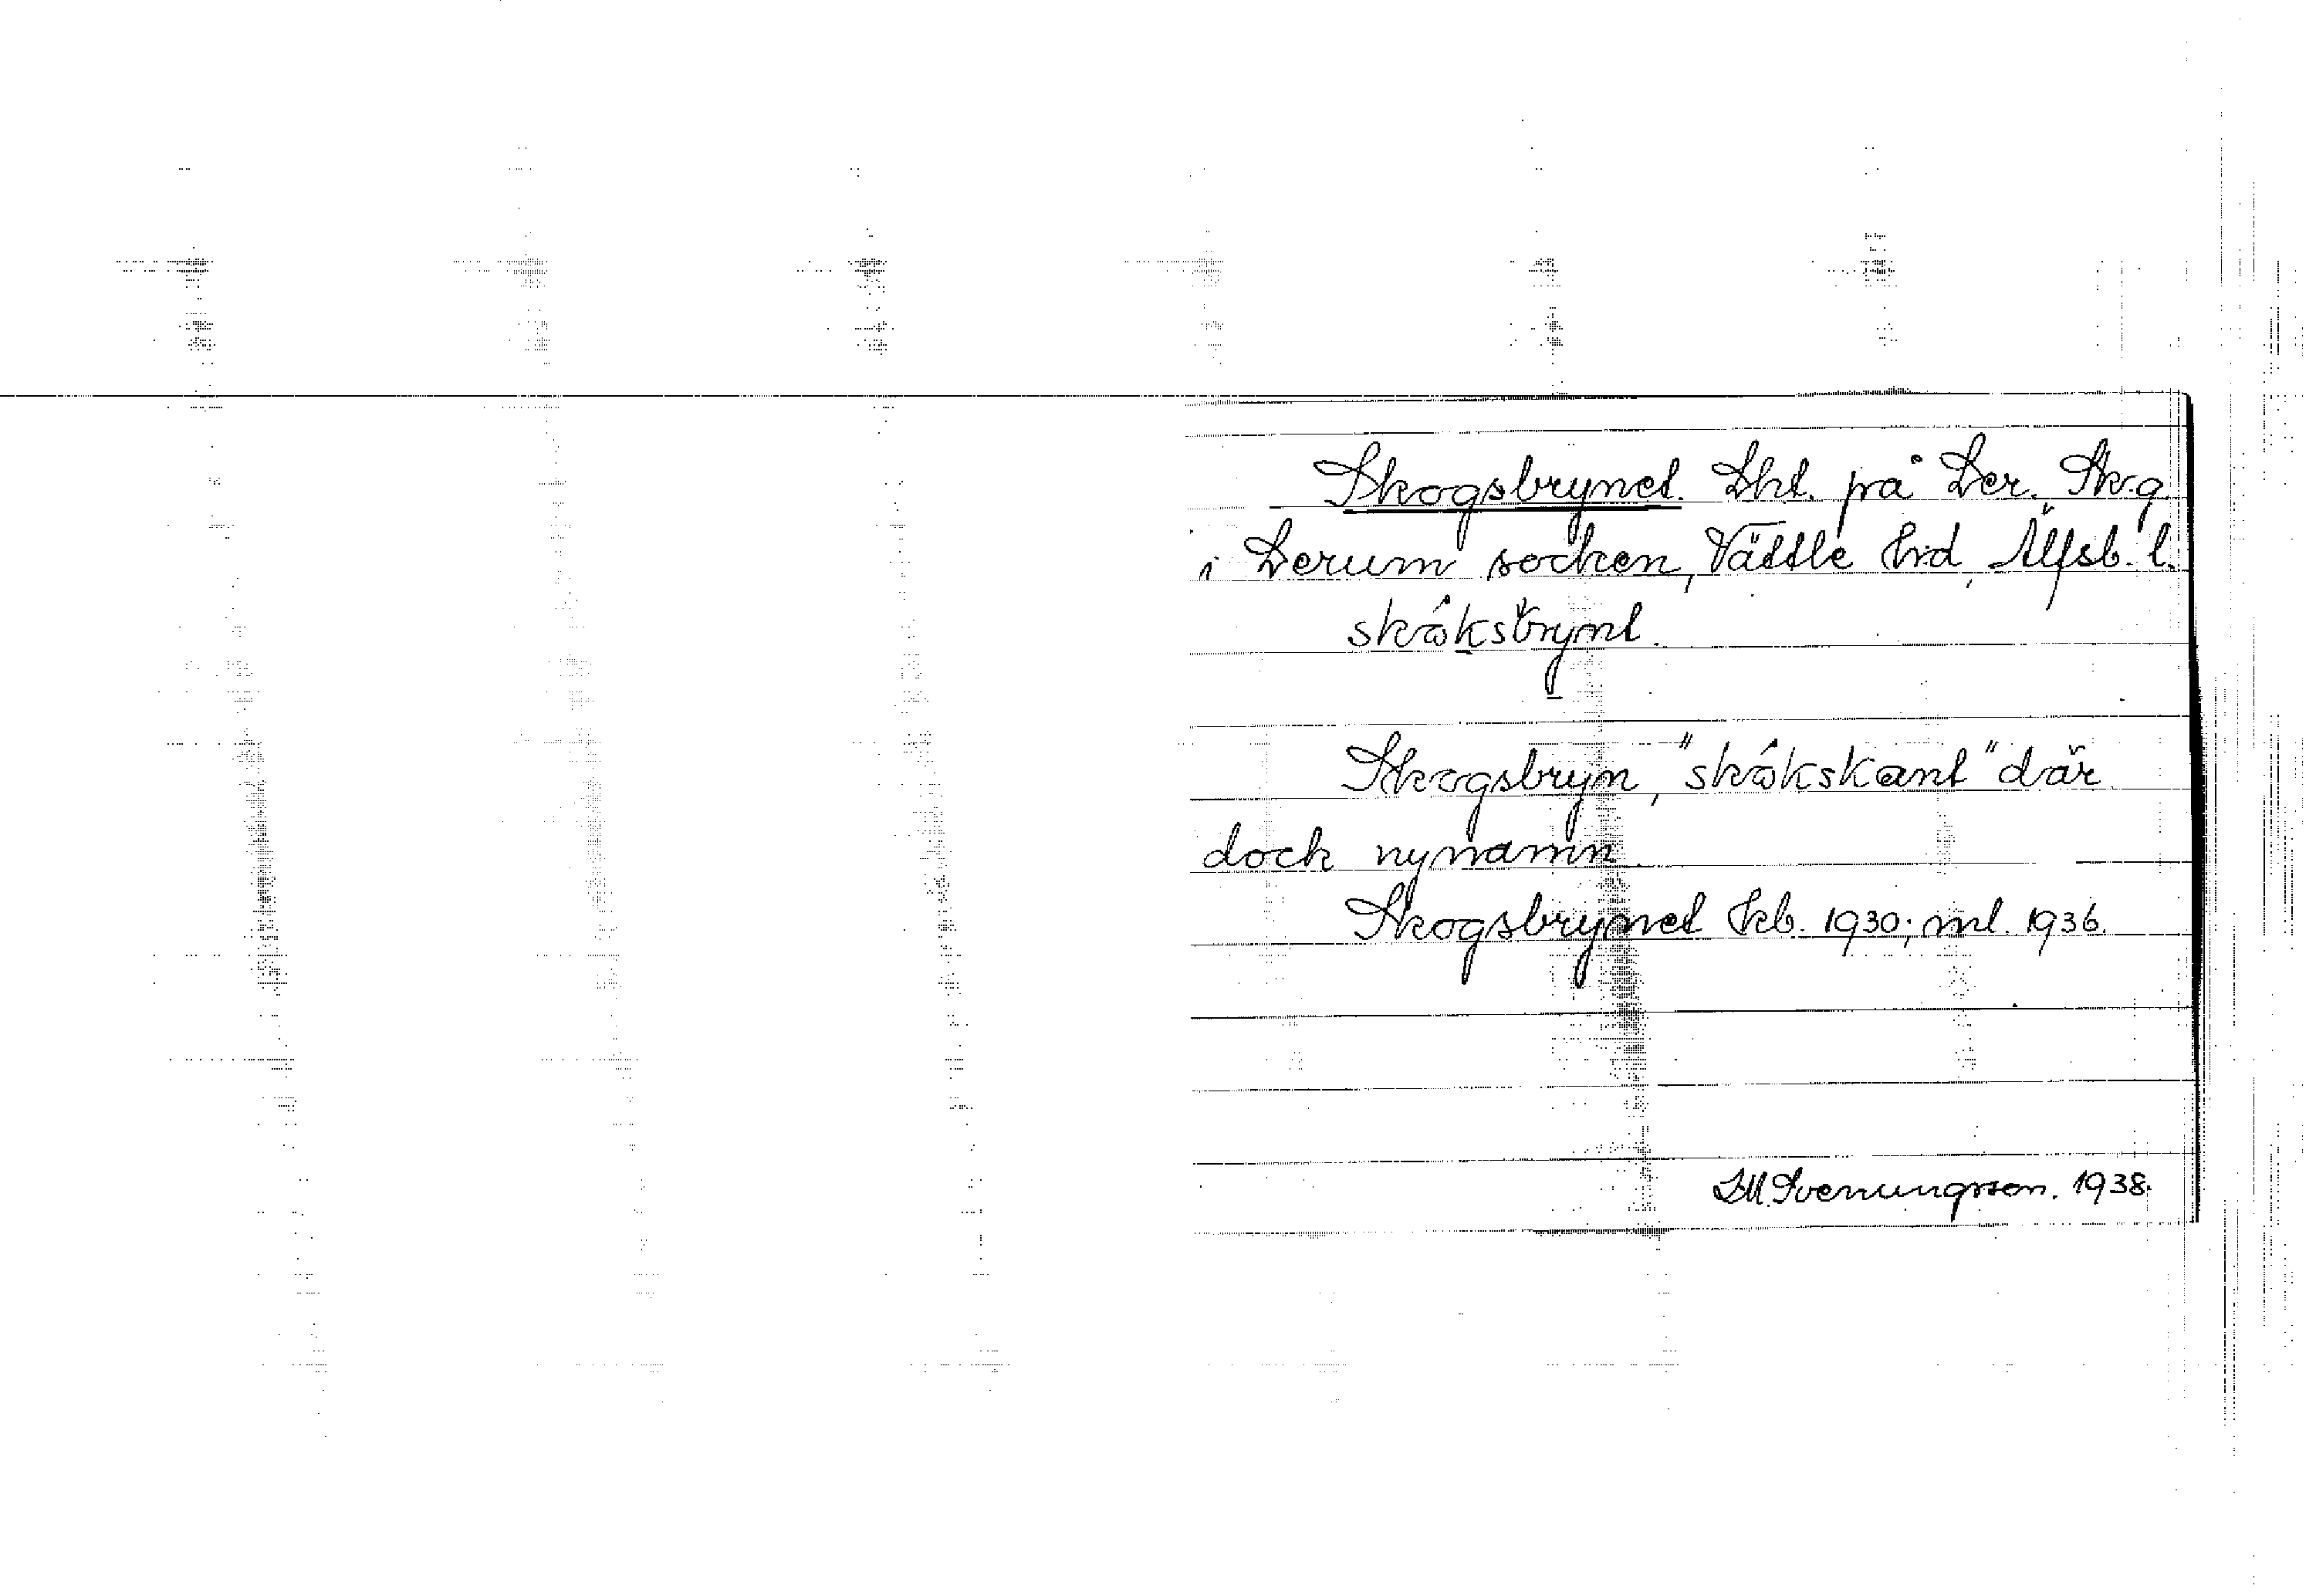 Skogsbrynet. Lht. på Ler. Sk.g.
i Lerum socken, Vättle hrd, Älfsb. l.
skôksbrynt.
Skogsbryn, "skôkskant" där
dock nynamn.
Skogsbrynet kb. 1930; ml. 1936.
1938.